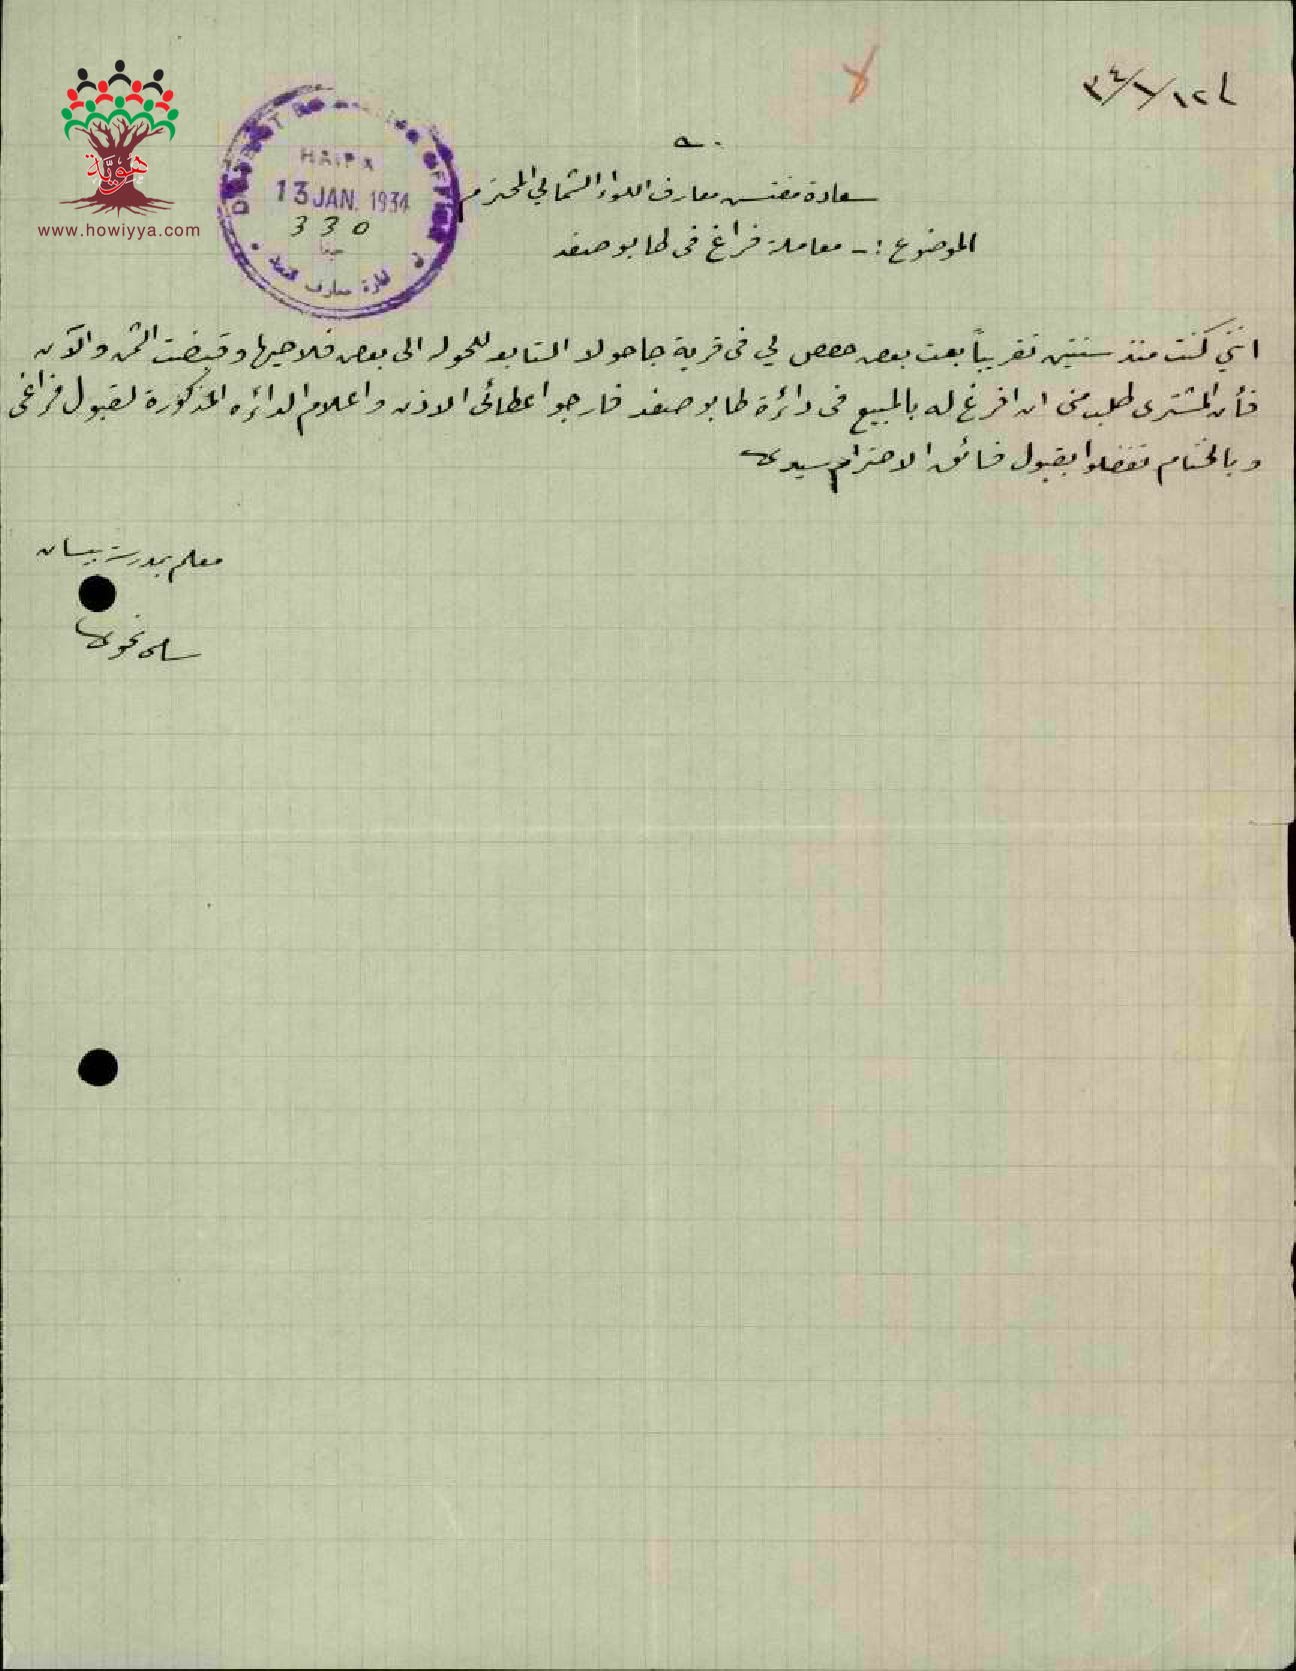 ١٢/١/٣٤
سعادة مفتش معارف اللواء الشمالي المحترم
الموضوع :ـ معاملة فراغ في طابو صفد
انني كنت منذ سنتين تقريباً بعت بعض حصص لي في قرية جاحولا التابعه للحوله الى بعض فلاحيها وقبضت الثمن والآن
فأن المشتري طلب مني ان افرغ له بالمبيع في دائرة طابو صفد فارجو اعطائي الاذن واعلام الدائره المذكورة لقبول فراغي
وبالختام تفضلوا بقبول فائق الاحترام سيدي
معلم بمدرسة بيسان
نحوي
HAIFA
13 JAN. 1934
330
حيفا
ادارة معارف
هوية
www.howiyya.com